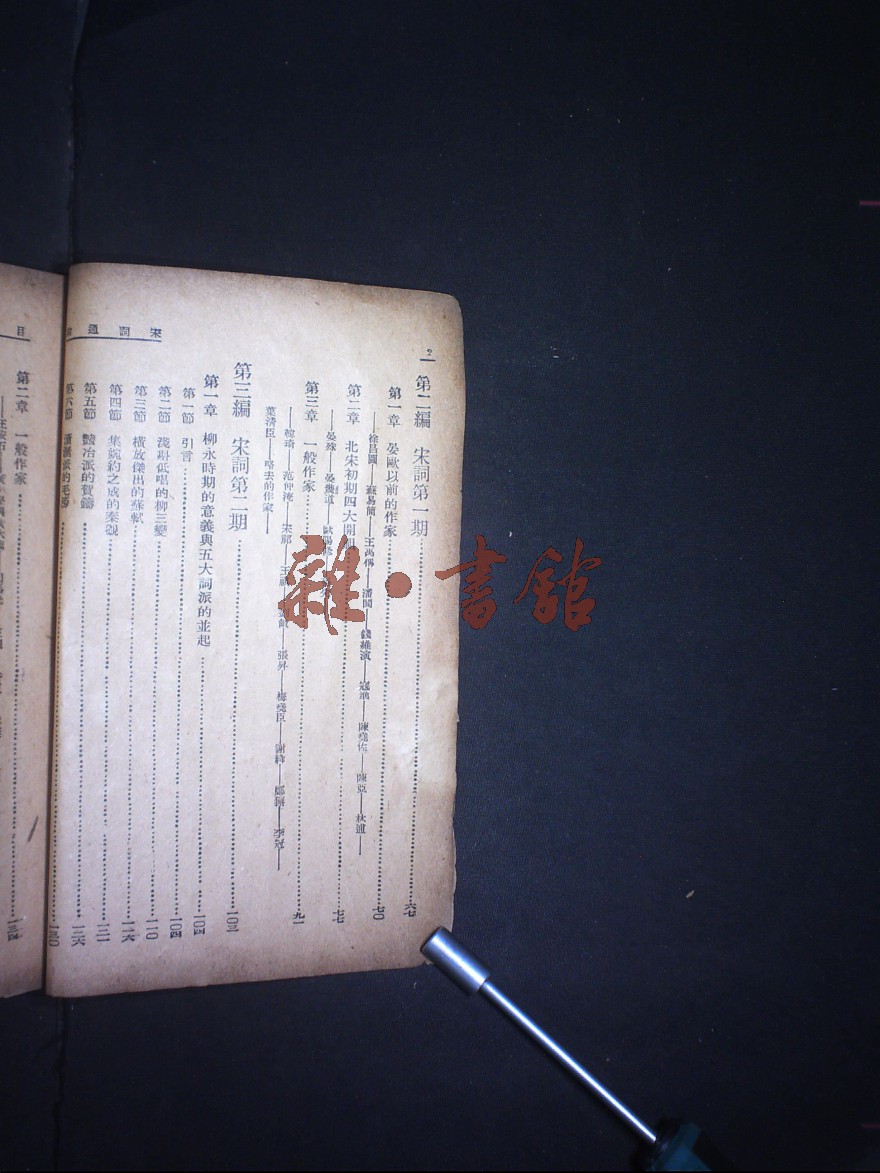 2
第二編　宋詞第一期 六七
第一章　晏歐以前的作家 七〇
——徐昌圖——蘇易簡——王禹偁——潘閬——錢維演——寇準——陳堯佐——陳亞——林逋——
第二章　北宋初期四大開 七七
——晏殊——晏幾道——歐陽修
第三章　一般作家 九一
——韓琦——范仲淹——宋祁——王 張昇——梅堯臣——謝絳—— 李冠——
葉清臣——略去的作家——
第三編　宋詞第二期 一〇三
第一章　柳永時期的意義與五大詞派的並起 一〇四
第一節　引言 一〇四
第二節　淺斟低唱的柳三變 一一〇
第三節　橫放傑出的蘇軾 一一六
第四節　集婉約之成的秦觀 一二一
第五節　豔冶派的賀鑄 一二六
第六節　瀟灑派的毛滂 一三〇
宋詞通
目
第二章　一般作家 一三四
雜·書舘